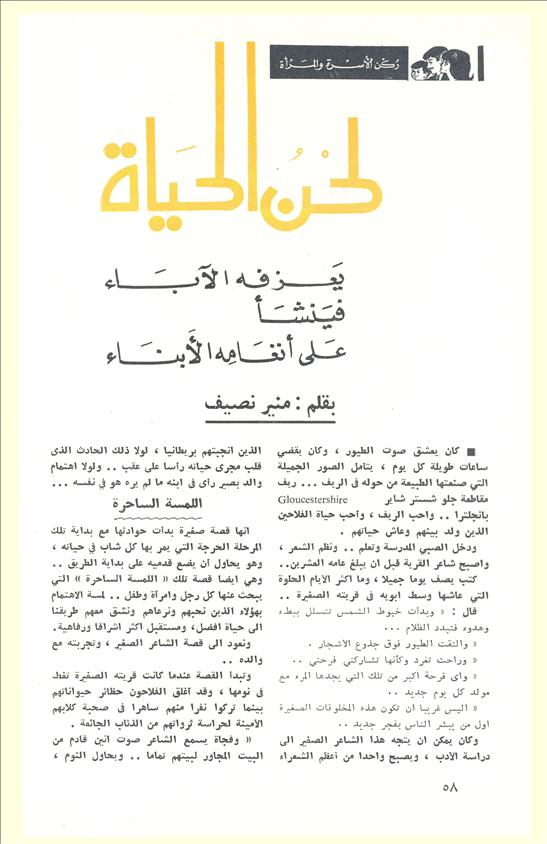 ركن الأسرة والمرأة
لحن الحياة
يعزفه الآباء
فينشأ
على أنغامه الأبناء
بقلم : منير نصيف
■ كان يعشق صوت الطيور ، وكان يقضي
ساعات طويلة كل يوم ، يتأمل الصور الجميلة
التي صنعتها الطبيعة من حوله في الريف ... ريف
مقاطعة جلو شستر شاير Gloucestershire
بانجلترا .. واحب الريف ، وأحب حياة الفلاحين
الذين ولد بينهم وعاش حياتهم .
ودخل الصبي المدرسة وتعلم .. ونظم الشعر ،
واصبح شاعر القرية قبل ان يبلغ عامه العشرين..
كتب يصف يوما جميلا ، وما اكثر الأيام الحلوة
التي عاشها وسط ابويه في قريته الصغيرة ..
قال : « وبدات خيوط الشمس تتسلل ببطء
وهدوء فتبدد الظلام ...
« والتقت الطيور فوق جذوع الأشجار .
« وراحت تغرد وكأنها تشاركني فرحتي ..
« واى فرحة اكبر من تلك التي يجدها المرء مع
مولد كل يوم جديد ..
« اليس غريبا ان تكون هذه المخلوقات الصغيرة
اول من يبشر الناس بفجر جديد ..
وكان يمكن ان يتجه هذا الشاعر الصغير الى
دراسة الأدب ، ويصبح واحدا من أعظم الشعراء
الذين انجبتهم بريطانيا ، لولا ذلك الحادث الذى
قلب مجرى حياته رأسا على عقب .. ولولا اهتمام
والد بصير رأى في ابنه ما لم يره هو في نفسه ...
اللمسة الساحرة
انها قصة صغيرة بدأت حوادثها مع بداية تلك
المرحلة الحرجة التي يمر بها كل شاب في حياته ،
وهو يحاول أن يضع قدميه على بداية الطريق ..
وهي ايضا قصة تلك « اللمسة الساحرة » التي
يبحث عنها كل رجل وامرأة وطفل .. لمسة الاهتمام
بهؤلاء الذين نحبهم ونرعاهم ونشق معهم طريقنا
الى حياة افضل، ومستقبل اكثر اشراقا ورفاهية.
ونعود الى قصة الشاعر الصغير ، وتجربته مع
والده ..
وتبدأ القصة عندما كانت قريته الصغيرة تغط
في نومها ، وقد أغلق الفلاحون حظائر حيواناتهم
بينما تركوا نفرا منهم ساهرا في صحبة كلابهم
الأمينة لحراسة ثرواتهم من الذئاب الجائعة .
« وفجأة يسمع الشاعر صوت انين قادم من
البيت المجاور لبيتهم تماما .. ويحاول النوم ،
٥٨